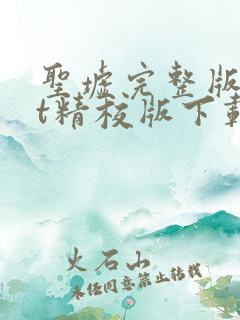 聖墟完整版
t精校版下載
火石山
未经同意禁止转载